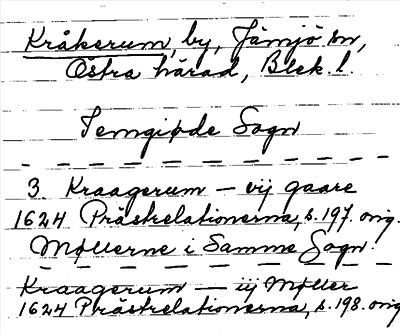 Kråkerum, by, Jämjö sn,
Östra härad, Blek. l.
Jemgiøde Sogn
3. Kraagerum — vij gaare
1624 Prästrelationerna, s. 197. orig.
Møllerne i Samme Sogn
Kraagerum — ij Møller
1624 Prästrelationerna, s. 198. orig